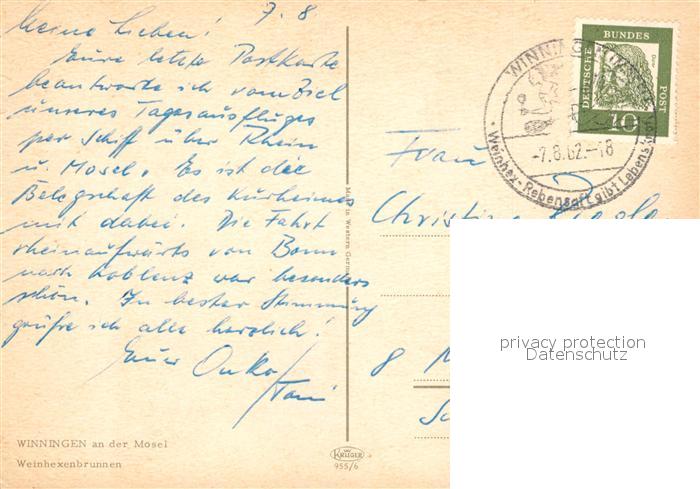 7.8
Meine Lieben!
Eure letzte Postkarte
beantworte ich vom Ziel
unseres Tagesausfluges
per Schiff über Rhein
u. Mosel. Es ist die
Belegschaft des Kurheimes
mit dabei. Die Fahrt
rheinaufwärts von Bonn
nach Koblenz war besonders
schön. In bester Stimmung
grüße ich alle herzlich!
Euer Onkel
WINNINGEN an der Mosel
Weinhexenbrunnen
Made in Western Germany
KRÜGER
955/6
DEUTSCHE BUNDES POST
10
WINNINGEN
-7.8.62.-18
Weinhex-Rebensaft gibt Lebenskraft
Frau
Christina
8 M
privacy protection
Datenschutz